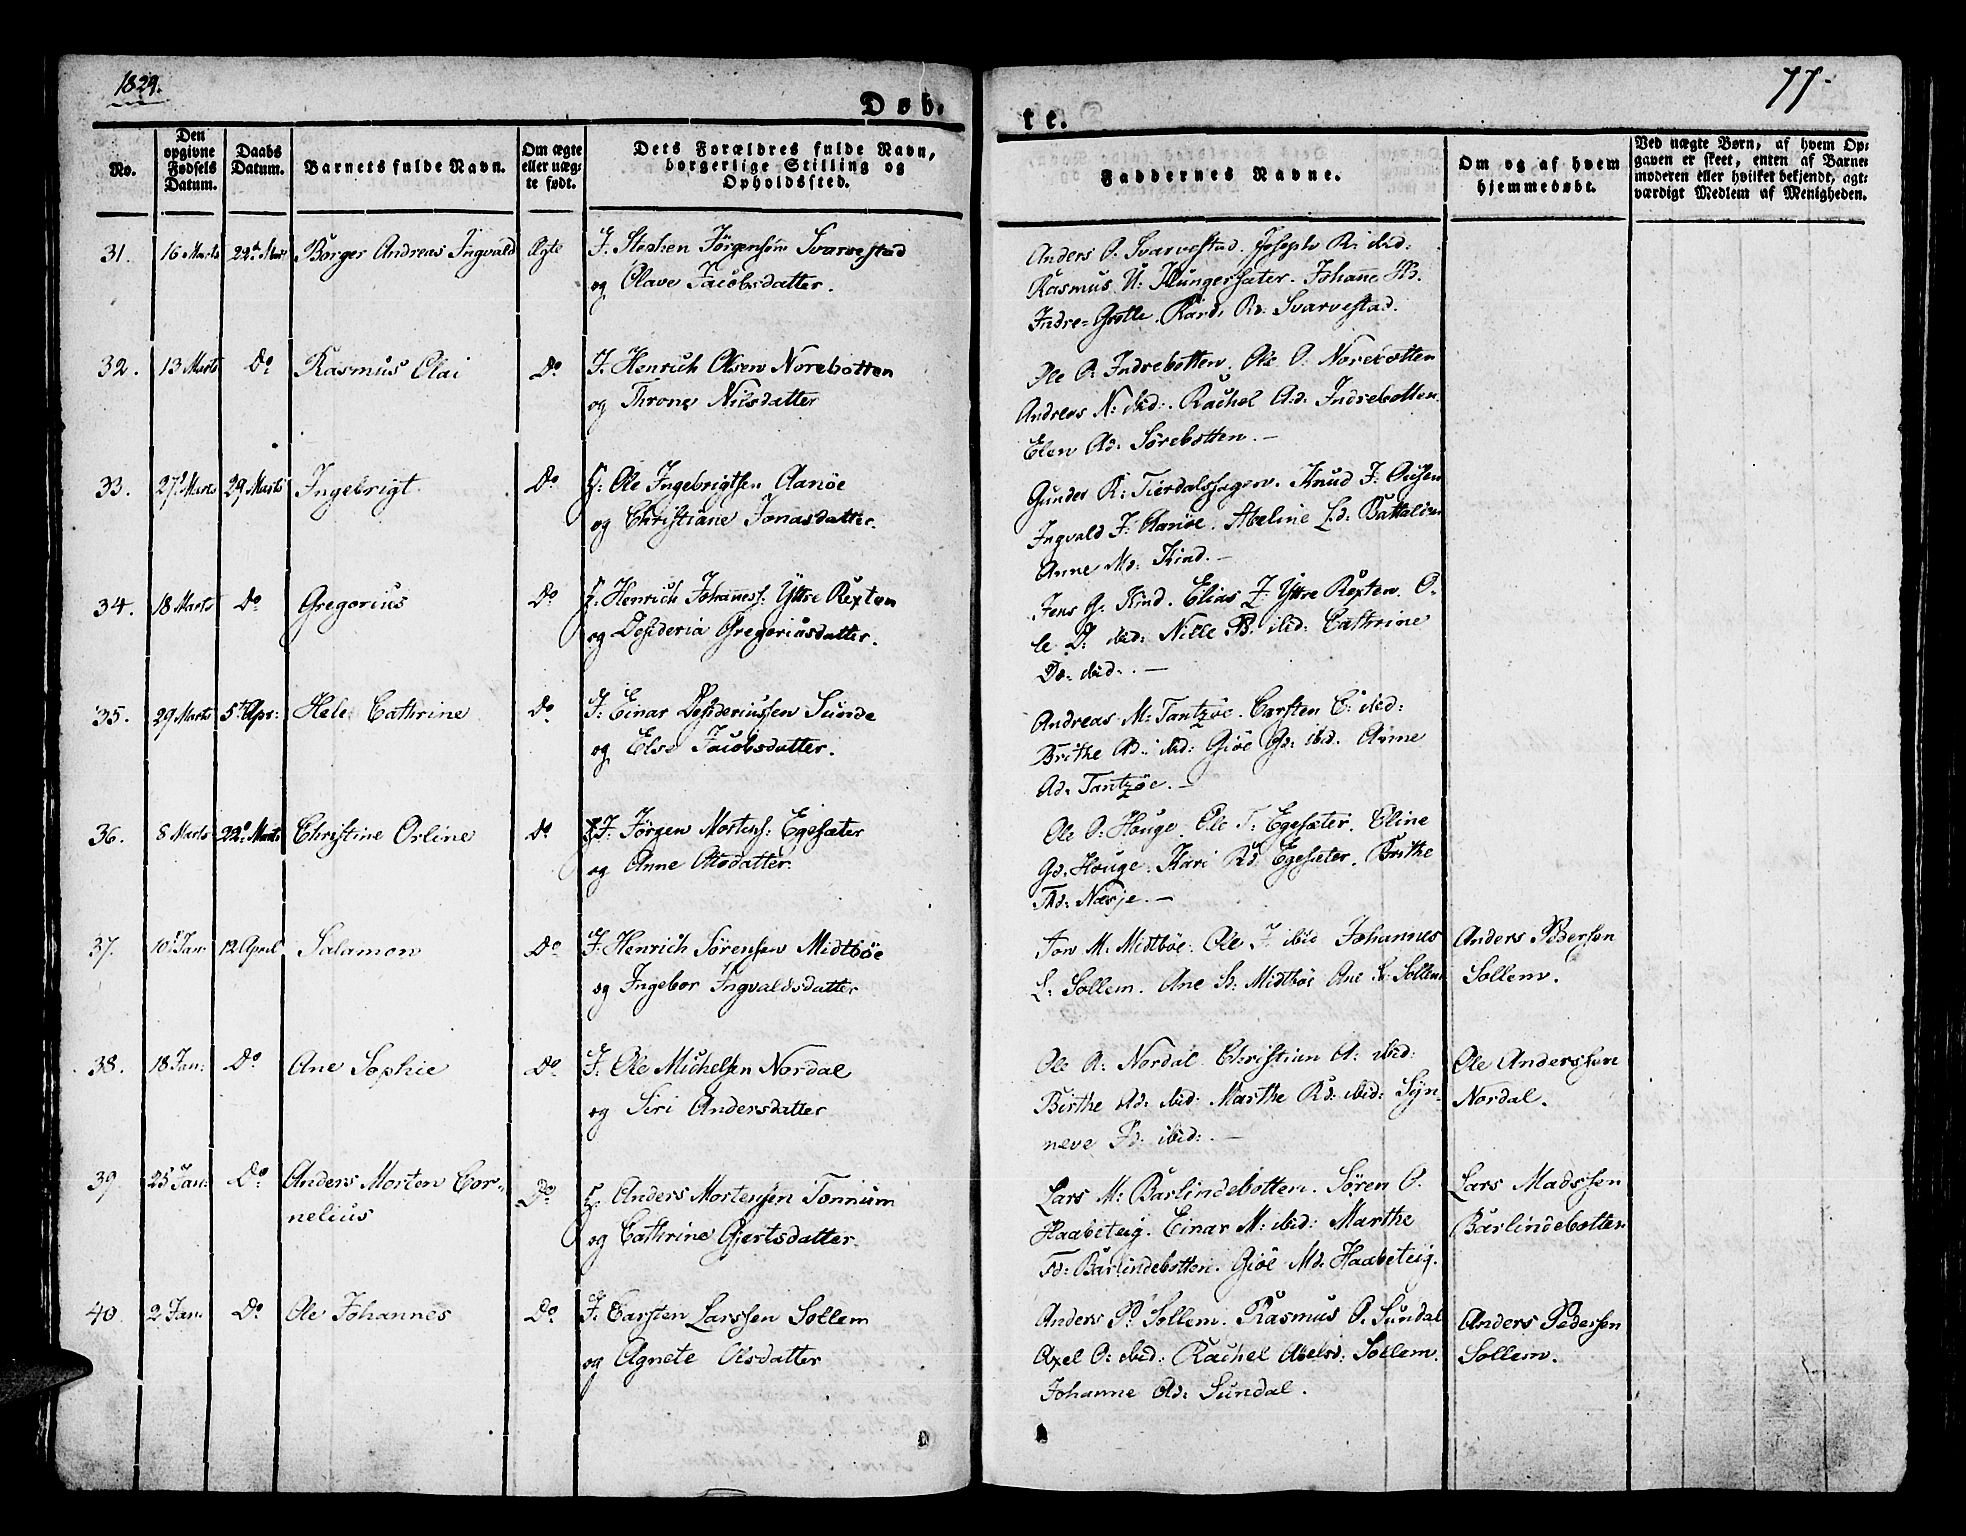 1829.
77.
Døb- te.
No.
Den opgivne Fødsels Datum.
Daabs Datum.
Barnets fulde Navn.
Om ægte eller uæg- te født.
Dets Forældres fulde Navn, borgerlige Stilling og Opholdssted.
Faddernes Navne.
Om og af hvem hjemmedøbt.
Ved uægte Børn, af hvem Op- gaven er skeet, enten af Barne- moderen eller hvilket bekjendt, agt- værdigt Medlem af Menigheden.
31. 16 Marts 22d Mar: Børger Andreas Ingvald Ægte F. Stephen Jørgensøn Svarvestad
og Olave Jacobsdatter.
Anders O. Svarvestad. Joseph R: ibid:
Rasmus N: Klungersæter. Johanne
Indre-Grotle. Kard. Rd: Svarvestad.
32. 13 Marts Do Rasmus Olai Do F. Henrich Olsen Norebotten
og Throne Nilsdatter
Ole O: Indrebotten. Ole O: Norebotten
Andreas N: ibid: Rachel Ad: Indrebotten
Elen Ad: Sørebotten. —
33. 27 Marts 29 Marts Ingebrigt Do F: Ole Ingebrigtsen Aanøe
og Christiane Jonasdatter.
Gunder R: Knud F:
Ingvald F: Aanøe. Abeline Ld: Battalden
Anne Md: Kind. —
34. 18 Marts Do Gregorius Do F. Henrich Johannesf: Yttre Rexten
og Desideria Gregoriusdatter.
Jens G: Kind. Elias J: Yttre Rexten. O-
le D: ibid: Nille B: ibid: Cathrine
Dd: ibid: —
35. 29 Marts 5t Apr: Hele Cathrine Do F: Einar Desideriussen Sunde
og Else Jacobsdatter.
Andreas M: Tantzøe. Carsten E: ibid:
Brithe Ad: ibid: Giøe Gd: ibid. Anne
Ad: Tantzøe. —
36. 8 Marts 22d Marts Christine Orline Do F. Jørgen Mortenf: Egesæter
og Anne Olsdatter.
Ole O: Houge. Ole T: Egesæter. Oline
Gd: Houge. Kari Rd: Egesæter. Brithe
Thd: Næsje. —
37. 10 Jan: 12 April Salamon Do F. Henrich Sørensen Midtbøe
og Ingebor Ingvaldsdatter
Jon M: Midtbøe. Ole J: ibid Johannes
L: Sollem. Ane Sd: Midtbøe Ane Sollem
Anders Pedersen
Sollem.
38. 18 Jan: Do Ane Sophie Do F: Ole Michelsen Nordal
og Siri Andersdatter
Ole A: Nordal. Christian A: ibid:
Birthe Ad: ibid: Marthe Rd: ibid: Syn-
neve Pd: ibid: —
Ole Anderssen
Nordal.
39 25 Jan: Do Anders Morten Cor-
nelius
Do F. Anders Mortensen Tonnum
og Cathrine Gjertsdatter.
Lars M: Barlindebotten. Søren O.
Haabeteig. Einar M: ibid: Marthe
Td: Barlindebotten. Giøe Md: Haabeteig.
Lars Madssen
Barlindebotten
40. 2 Jan: Do Ole Johannes Do F. Carsten Larssen Sollem
og Agnete Olsdatter
Anders P: Sollem. Rasmus O. Sundal
Axel O: ibid: Rachel Abelsd: Sollem.
Johanne Ad: Sundal.
Anders Pedersen
Sollem.